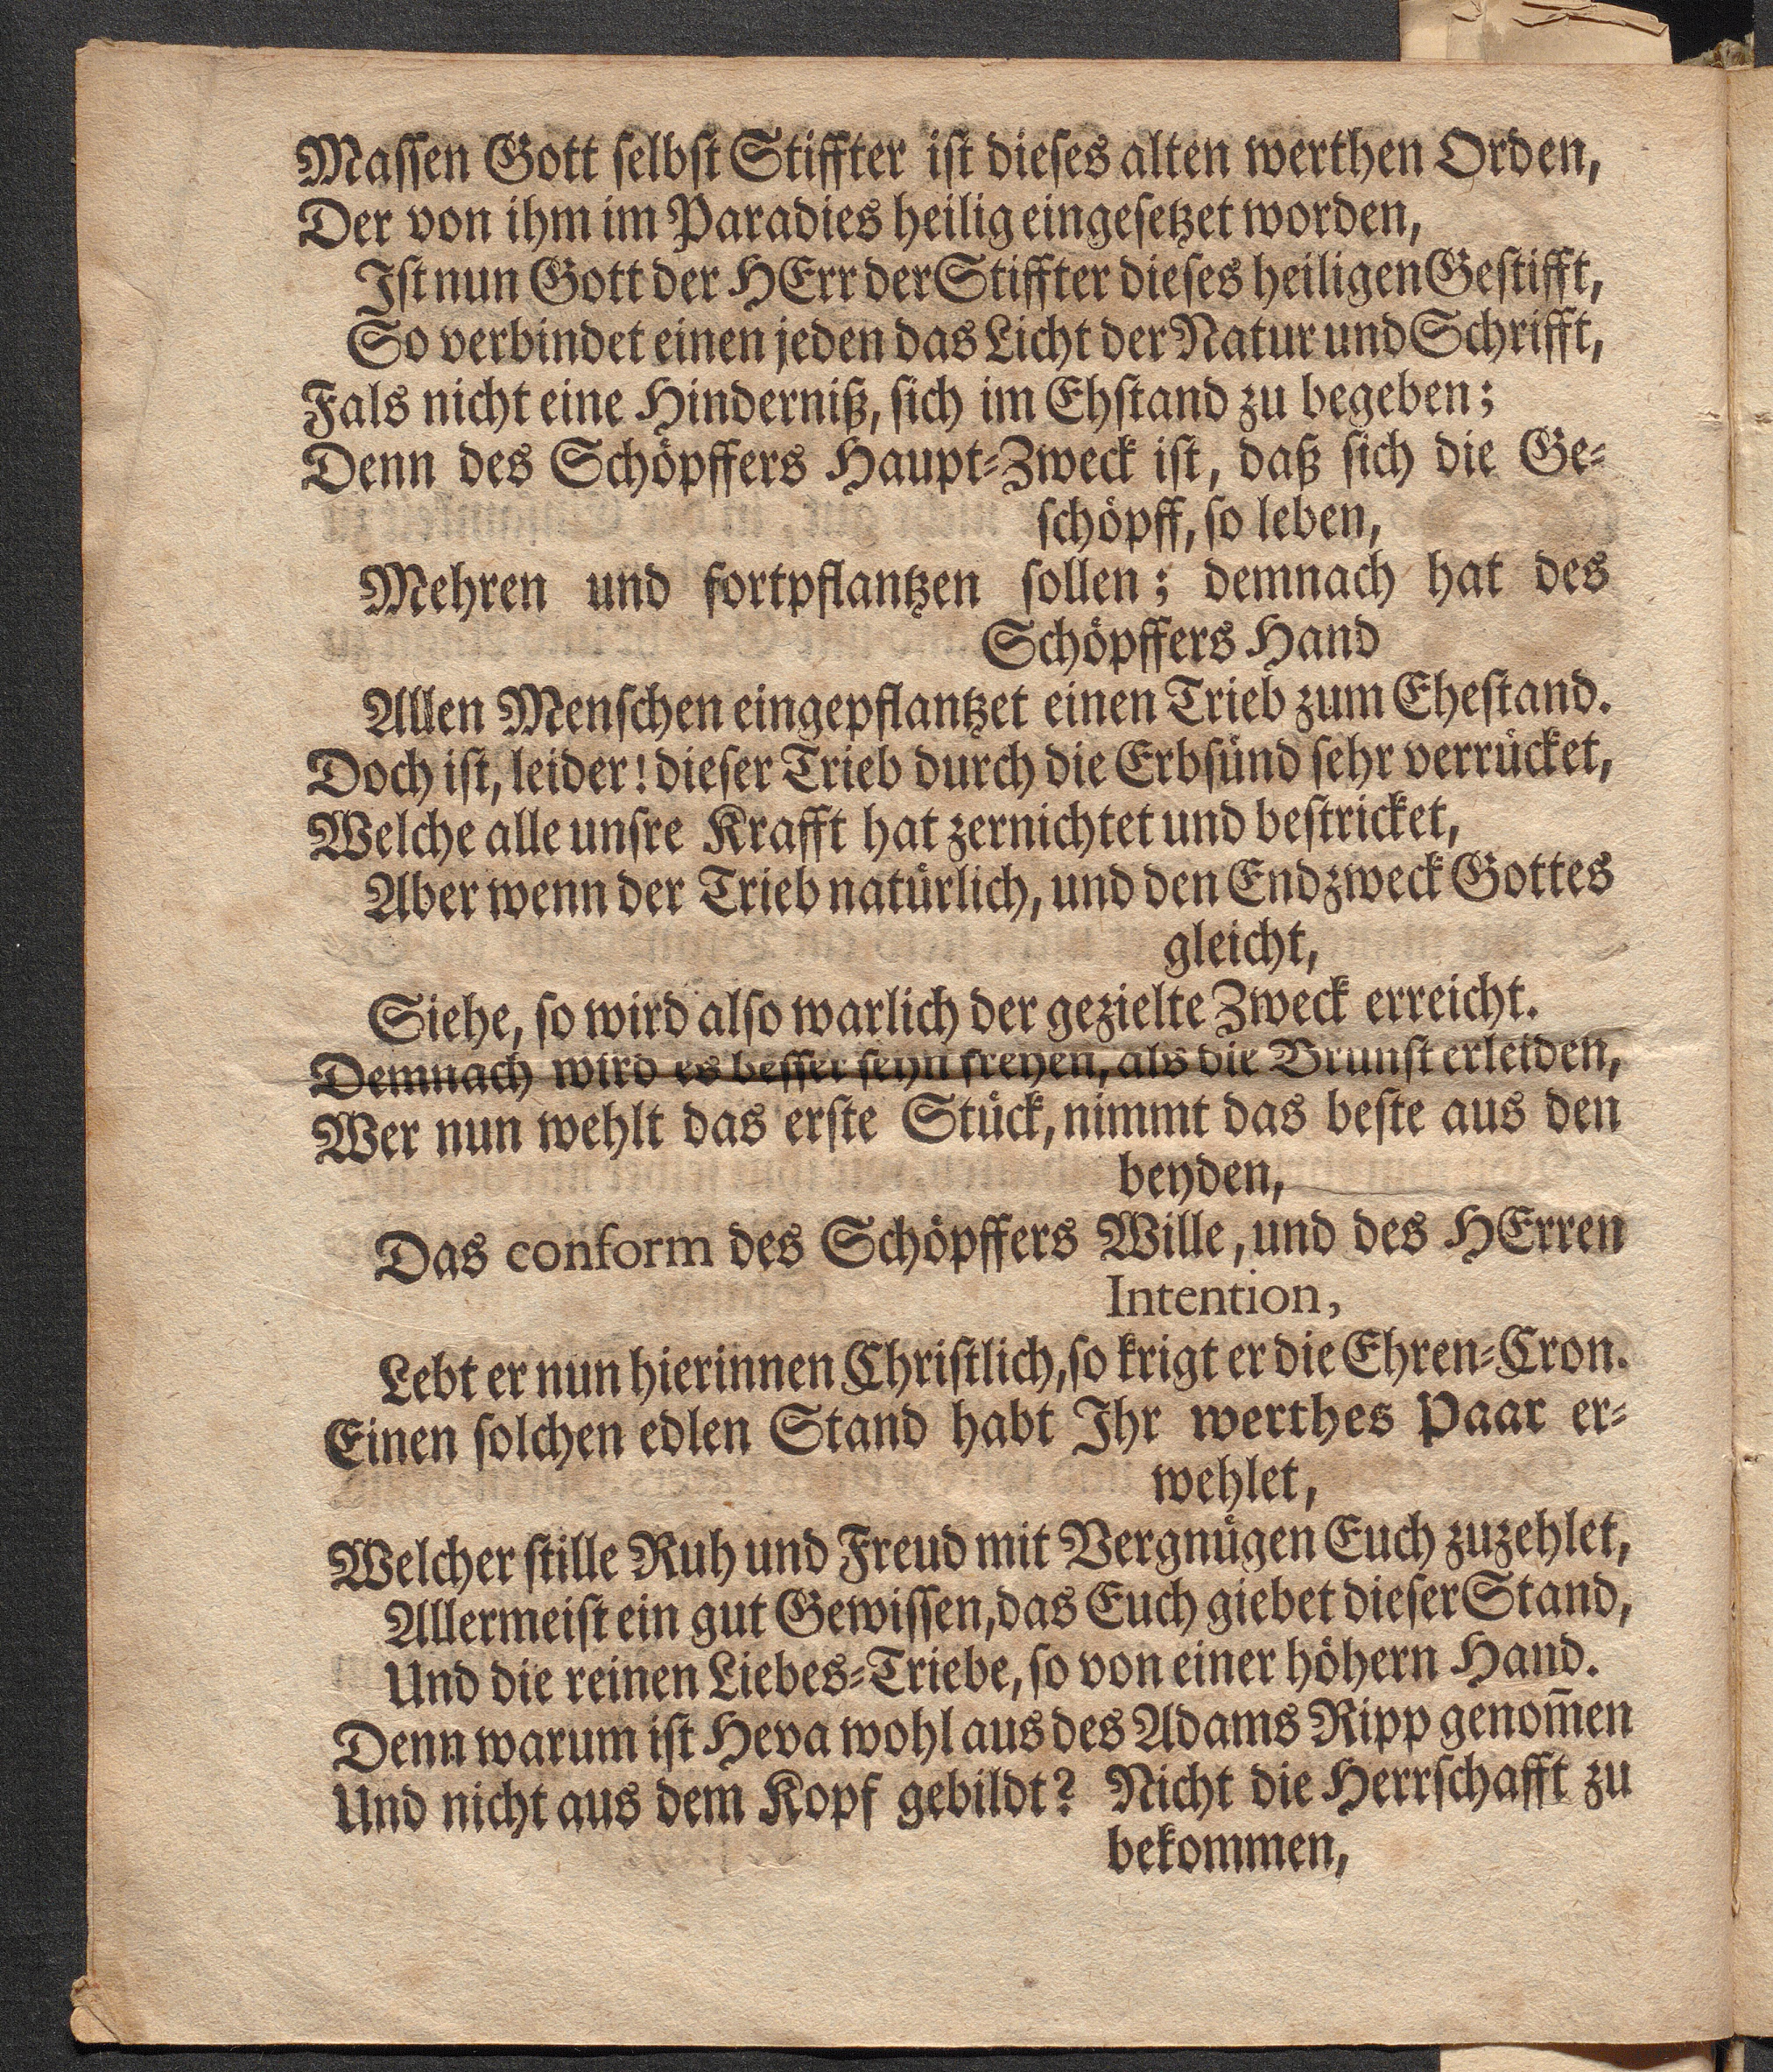 Massen Gott selbst Stiffter ist dieses alten werthen Orden,
Der von ihm im Paradies heilig eingesetzet worden,
Ist nun Gott der HErr der Stiffter dieses heiligen Gestifft,
So verbindet einen jeden das Licht der Natur und Schrifft,
Fals nicht eine Hinderniß, sich im Ehstand zu begeben;
Denn des Schöpffers Haupt-Zweck ist, daß sich die Ge-
schöpff, so leben,
Mehren und fortpflantzen sollen; demnach hat des
Schöpffers Hand
Allen Menschen eingepflantzet einen Trieb zum Ehestand.
Doch ist, leider! dieser Trieb durch die Erbsünd sehr verrücket,
Welche alle unsre Krafft hat zernichtet und bestricket,
Aber wenn der Trieb natürlich, und den Endzweck Gottes
gleicht,
Siehe, so wird also warlich der gezielte Zweck erreicht.
Demnach wird es besser seyn freyen, als die Brunst erleiden,
Wer nun wehlt das erste Stück, nimmt das beste aus den
beyden,
Das conform des Schöpffers Wille, und des HErren
Intention,
Lebt er nun hierinnen Christlich, so krigt er die Ehren-Cron.
Einen solchen edlen Stand habt Ihr werthes Paar er-
wehlet,
Welcher stille Ruh und Freud mit Vergnügen Euch zuzehlet,
Allermeist ein gut Gewissen, das Euch giebet dieser Stand,
Und die reinen Liebes-Triebe, so von einer höhern Hand.
Denn warum ist Heva wohl aus des Adams Ripp genom̅en
Und nicht aus dem Kopf gebildt? Nicht die Herrschafft zu
bekommen,